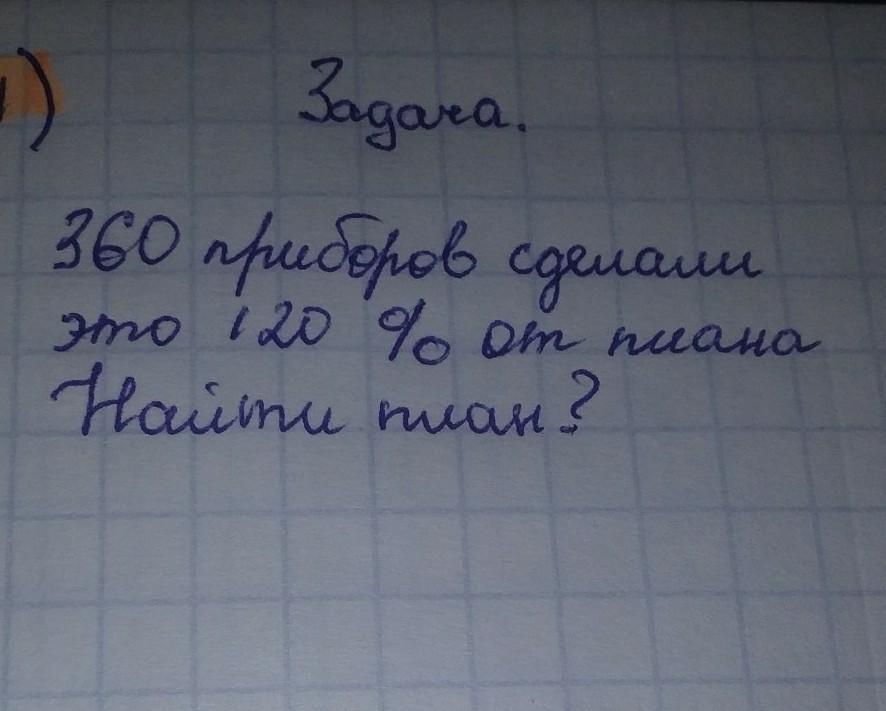 1) Задача.
360 приборов сделали
это 120 % от плана
Найти план?